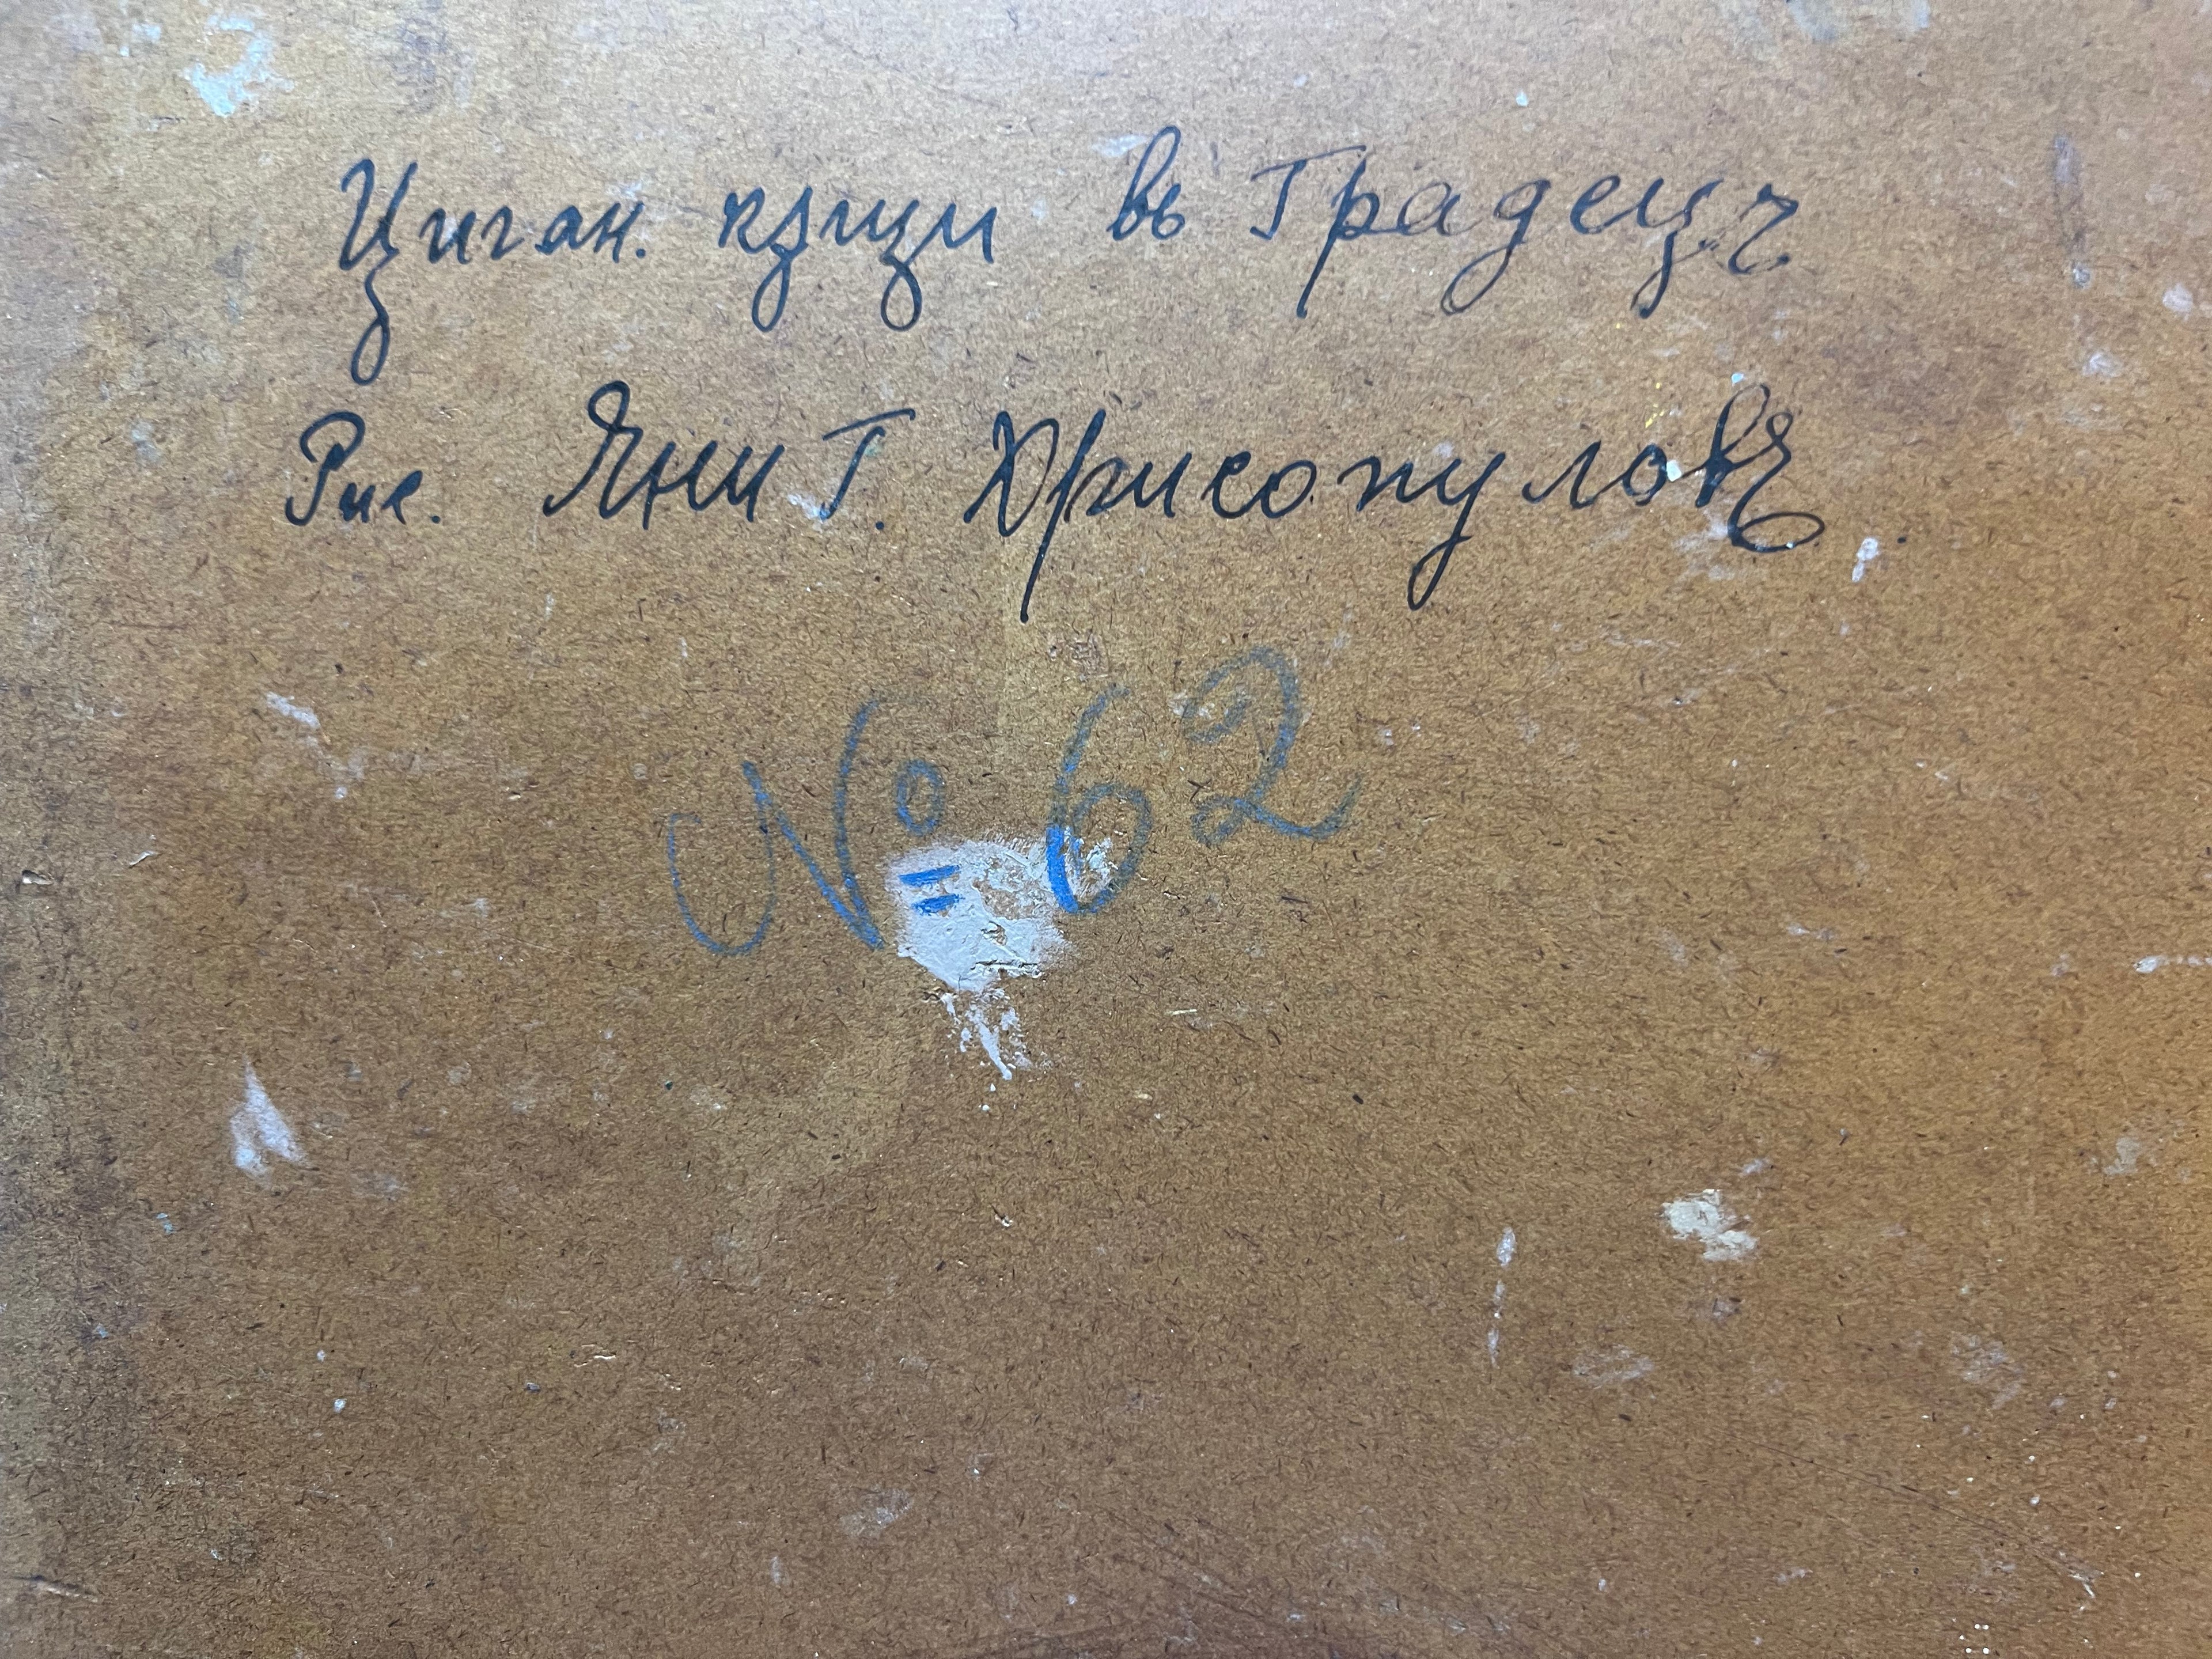 Циган. кѫщи въ Градецъ
Рис. Яни Г. Хрисопуловъ.
№ 62